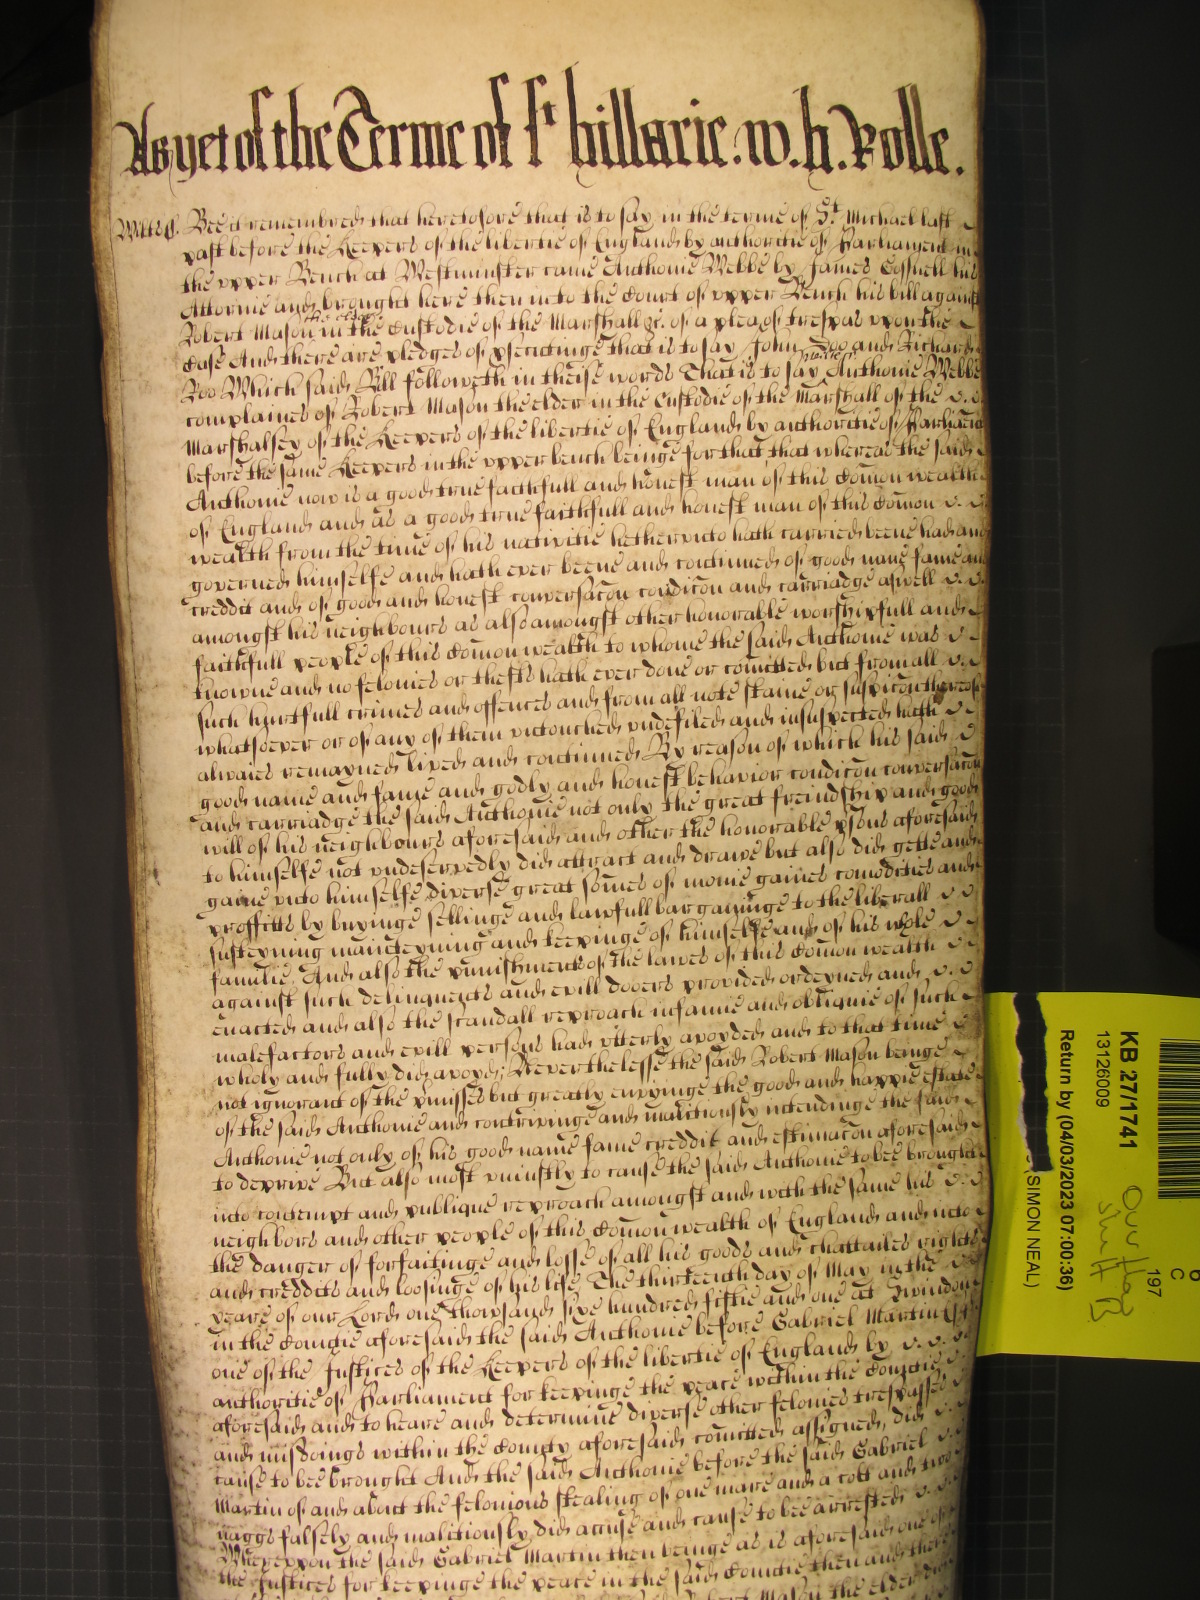 As yet of the Terme of St hillarie. w. h. Rolle.
Wiltes ss. Bee it remembred that heretofore that is to say in the terme of St. Michael last
past before the Keepers of the libertie of England by authoritie of Parliament in
the upper Bench at Westminster came Anthonie Webbe by James Gosnell his
Attornie and brought here then into the Court of upper Bench his bill against
the elder
Robert Mason in the Custodie of the Marshall &c. of a plea of trespas upon the
Case And there are pledges of prsecutinge that is to say John Doo and Richard
Roo Which said Bill followeth in theise words That is to say Anthonie Webbe
complaines of Robert Mason the elder in the Custodie of the Marshall of the
Marshalsey of the Keepers of the libertie of England by authoritie of Parliament
before the same Keepers in the upper bench beinge for that that whereas the said
Anthonie now is a good true faithfull and honest man of this Comon wealth
of England and as a good true faithfull and honest man of this Comon
wealth from the time of his nativitie hetherunto hath carried beene had and
governed himselfe and hath ever beene and continued of good name fame and
creddit and of good and honest conversacon condicon and carriadge aswell
amongst his neighbours as also amongst other honorable worshipfull and
faithfull people of this Comon wealth to whome the said Anthonie was
knowne and no felonies or thefts hath ever done or comitted but from all
such hurtfull crimes and offences and from all note staine or suspicon thereof
whatsoever or of any of them untouched undefiled and insuspected hath
alwaies remayned lived and continued By reason of which his said
good name and fame and godly and honest behavior condicon conversacon
and carriadge the said Anthonie not only the great freindship and good
will of his neighbours aforesaid and other the honorable psons aforesaid
to himselfe not undeservedly did attract and drawe but also did gette and
gaine unto himselfe diverse great somes of monie gaines comodities and
proffitts by buyinge sellinge and lawfull bargaininge to the liberall
susteyning mainteyning and keepinge of himselfe and of his whole
familie And also the punishments of the lawes of this Comon wealth
against such delinquents and evill dooers provided ordeyned and
enacted and also the scandall reproach infamie and obliquie of such
malefactors and evill persons had utterly avoyded and to that time
wholy and fully did avoyd; Neverthelesse the said Robert Mason beinge
not ignorant of the pmisses but greatly envyinge the good and happie estate
of the said Anthonie and contrivinge and malitiously intendinge the said
Anthonie not only of his good name fame creddit and estimacon aforesaid
to deprive But also most uniustly to cause the said Anthonie to bee brought
into contempt and publique reproach amongst and with the same his
neighbors and other people of this Comon wealth of England and into
the danger of forfaitinge and losse of all his goods and chattailes rights
and creddits and loosinge of his life The thirteenth day of May in the
yeare of our Lord one thowsand sixe hundred fiftie and one at Swindon
in the Countie aforesaid the said Anthonie before Gabriel Martin
one of the Justices of the Keepers of the libertie of England by
authoritie of Parliament for keepinge the peace within the Countie
aforesaid and to heare and determine diverse other felonies trespasses
and misdoings within the County aforesaid comitted assigned did
cause to bee brought And the said Anthonie before the said Gabriel
Martin of and about the felonious stealing of one mare and a colt and two
naggs falsely and malitiously did accuse and cause to bee arrested
Whereuppon the said Gabriel Martin then beinge as is aforesaid one of
the Justices for keepinge the peace in the said Countie then and there
Mason the elder
KB 27/1741
13126009
Return by (04/03/2023 07:00:36)
SIMON NEAL)
197
C